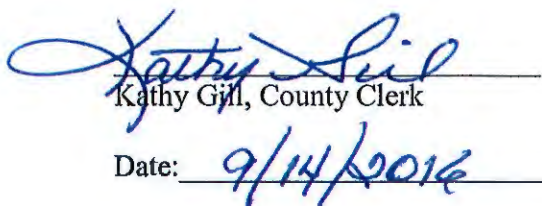 Kathy Gill
Kathy Gill, County Clerk
Date: 9/14/2016